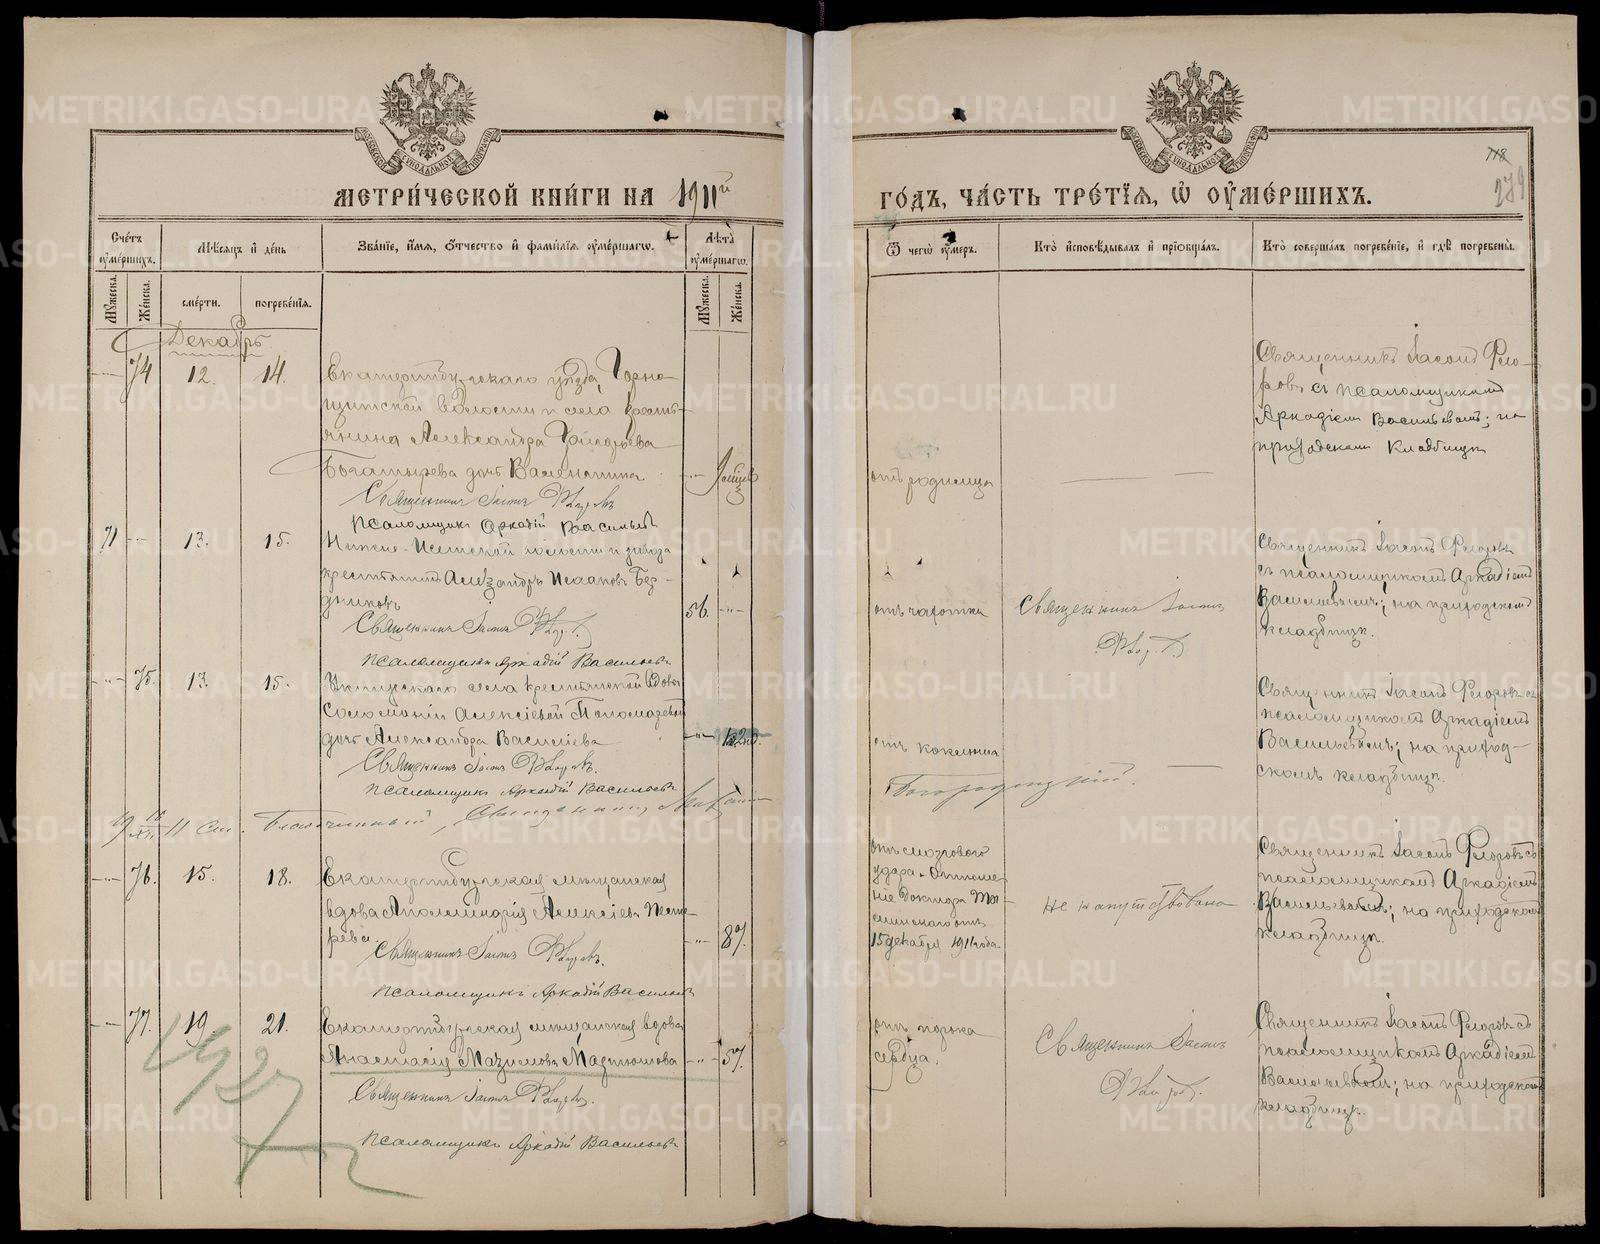 МЕТРИ́ЧЕСКОЙ КНИ́ГИ НА 1911й ГО́ДЪ, ЧА́СТЬ ТРЕ́ТІЯ, Ѡ ОУМЕ́РШИХЪ.
718
279
Сче́тъ оуме́ршихъ.
Мѣ́сяцъ и де́нь
Зва́ніе, и́мя, о́тчество и фами́лія оуме́ршагѡ.
Лѣ́та оуме́ршагѡ.
Ѿ чегѡ̀ оу́меръ.
Кто̀ исповѣ́дывалъ и пріобща́лъ.
Кто̀ соверша́лъ погребе́ніе, и гдѣ̀ погребены̀.
Му́жеска. Же́нска. сме́рти. погребе́нія. Му́жеска. Же́нска.
Декабрь
74 12. 14.
Екатеринбургскаго уѣзда, Горно-
щитской волости и села кресть-
янина Александра Григорьева
Богатырева дочь Валентина
Священникъ Іасонъ Флоровъ
Псаломщикъ Аркадій Васильевъ
отъ родимца
Священникъ Іасонъ Фло-
ровъ съ псаломщикомъ
Аркадіемъ Васильевымъ; на
приходскомъ кладбищѣ
71 13. 15.
Нижне-Исетской волости и завода
крестьянинъ Александръ Исааковъ Бер-
дниковъ
56.
Священникъ Іасонъ Флоровъ
Псаломщикъ Аркадій Васильевъ
отъ чахотки
Священникъ Іасонъ
Флоровъ
Священникъ Іасонъ Флоровъ
съ псаломщикомъ Аркадіемъ
Васильевымъ; на приходскомъ
кладбищѣ.
75. 13. 15.
села крестьянской вдовы
Соломоніи Алексіевой Пономаревой
дочь Александра Василіева
Священникъ Іасонъ Флоровъ.
Псаломщикъ Аркадій Васильевъ
отъ коклюша
Священникъ Іасонъ Флоровъ съ
псаломщикомъ Аркадіемъ
Васильевымъ; на приход-
скомъ кладбищѣ.
Благочинный, Священникъ
Богородицкій.
76. 15. 18.
Екатеринбургская мѣщанская
вдова Аполлинарія Алексіева Песте-
рева.
87.
Священникъ Іасонъ Флоровъ.
Псаломщикъ Аркадій Васильевъ
отъ мозгового
удара. Отноше-
ніе Доктора
отъ
15 декабря 1911 года
не напутствована
Священникъ Іасонъ Флоровъ съ
псаломщикомъ Аркадіемъ
Васильевымъ; на приходскомъ
кладбищѣ.
77. 19. 21.
Екатеринбургская мѣщанская вдова
Анастасія Максимова Мартюшова
57.
Священникъ Іасонъ Флоровъ.
Псаломщикъ Аркадій Васильевъ
отъ порока
сердца.
Священникъ Іасонъ
Флоровъ.
Священникъ Іасонъ Флоровъ съ
псаломщикомъ Аркадіемъ
Васильевымъ; на приходскомъ
кладбищѣ.
1927
METRIKI.GASO-URAL.RU